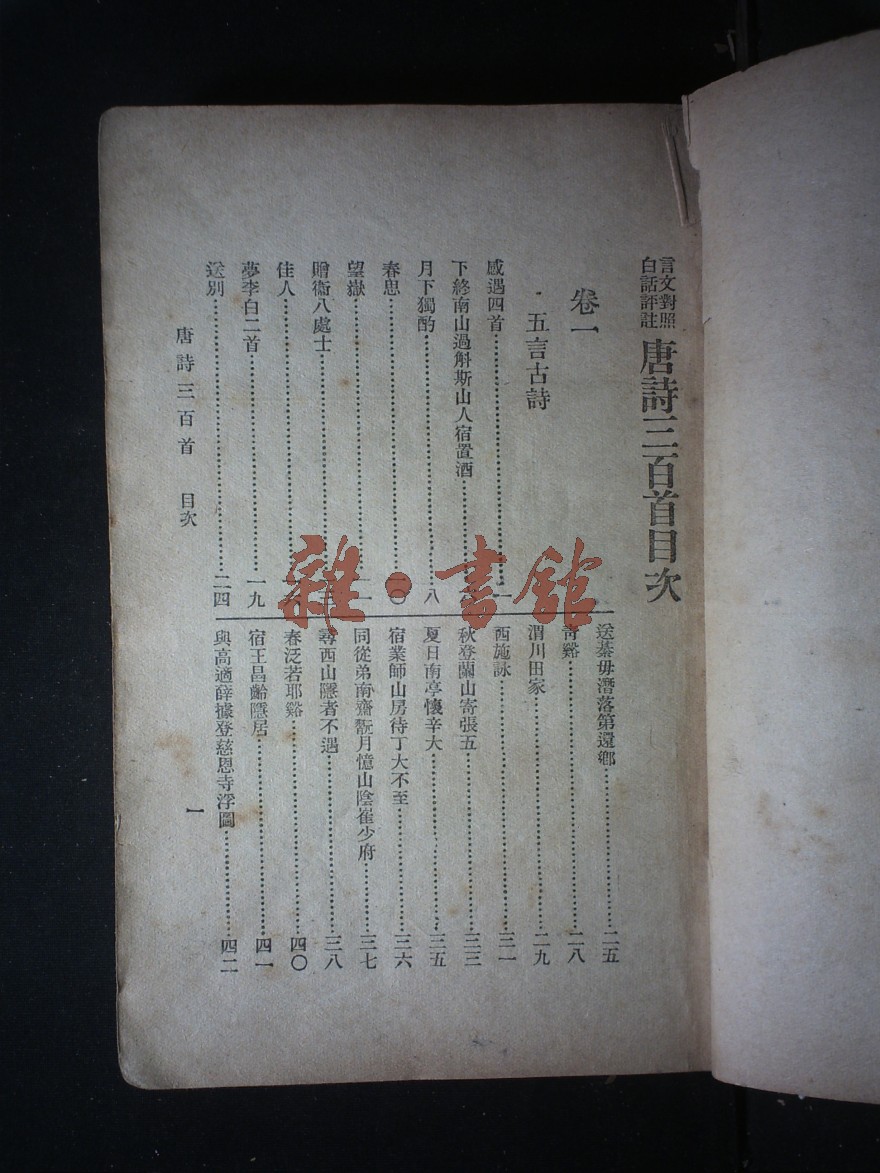 言文對照
白話評註
唐詩三百首目次
卷一
五言古詩
感遇四首…一
下終南山過斛斯山人宿置酒…
月下獨酌…八
春思…一〇
望嶽…一一
贈衞八處士…
佳人…
夢李白二首…一九
送別…二四
送綦毋潛落第還鄉…二五
青谿…二八
渭川田家…二九
西施詠…三一
秋登蘭山寄張五…三三
夏日南亭懷辛大…三五
宿業師山房待丁大不至…三六
同從弟南齋翫月憶山陰崔少府…三七
尋西山隱者不遇…三八
春泛若耶谿…四〇
宿王昌齡隱居…四一
與高適薛據登慈恩寺浮圖…四二
唐詩三百首 目次
一
雜·書館